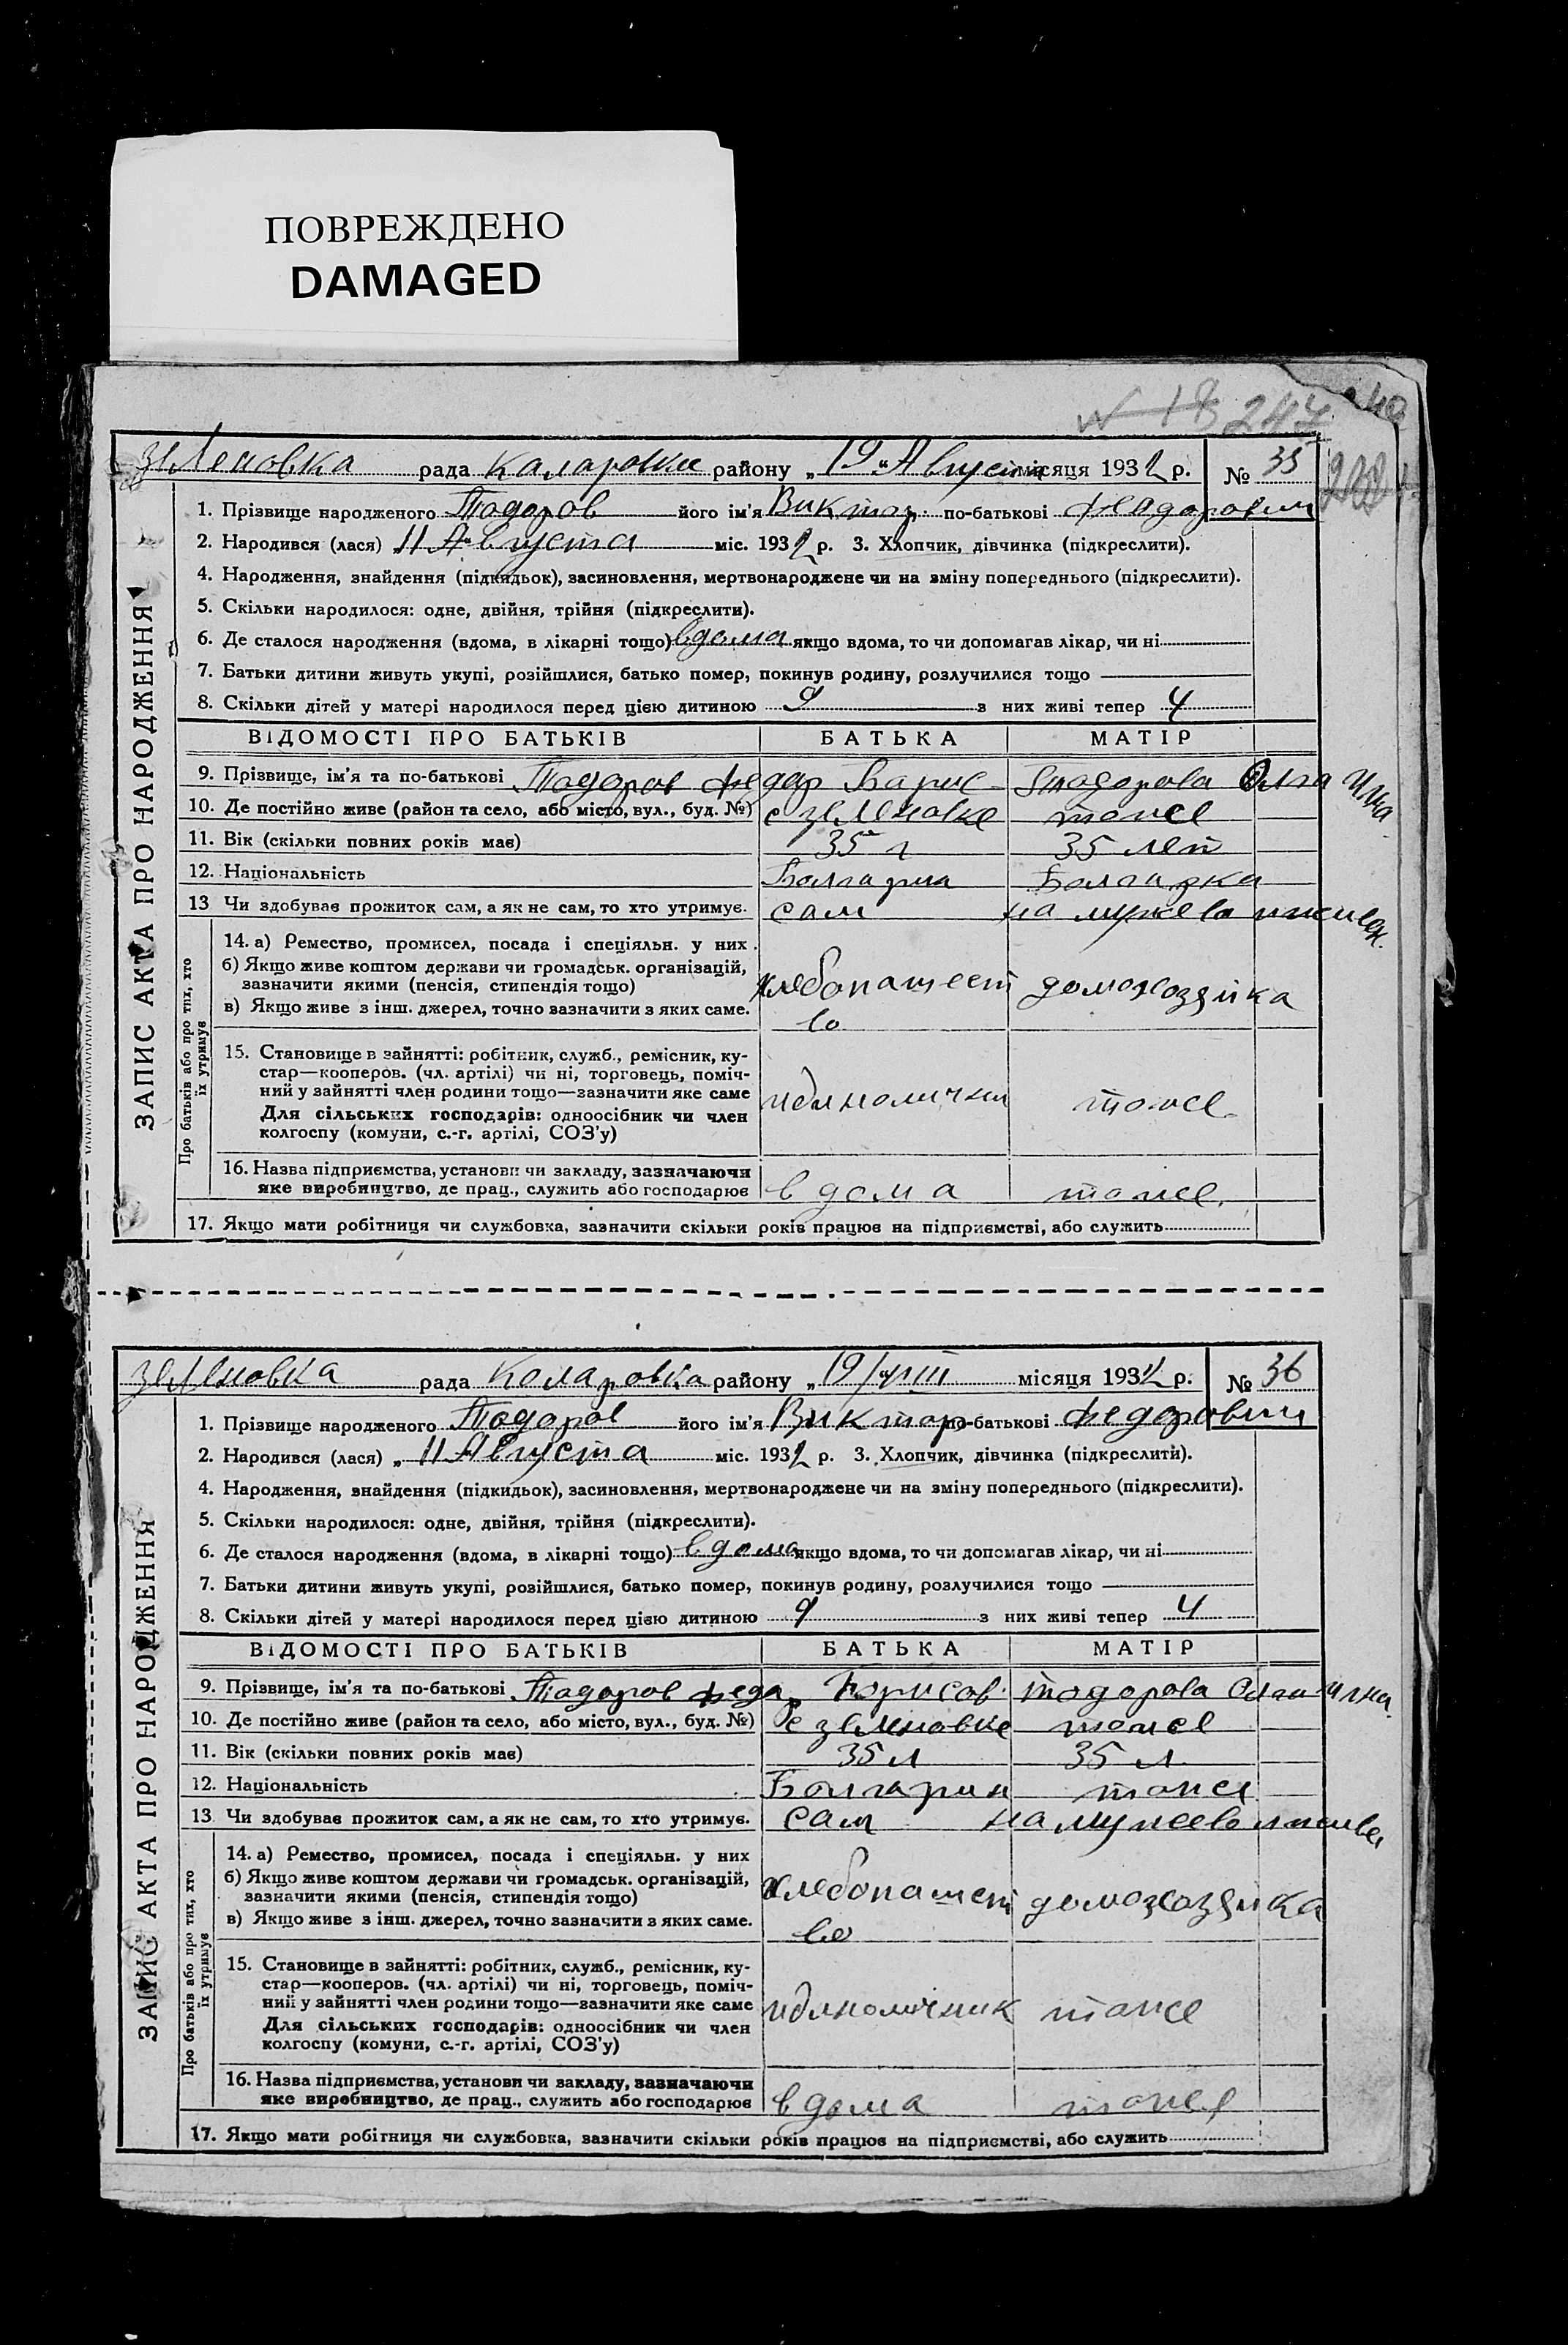 ПОВРЕЖДЕНО
DAMAGED
N 18 247
зеленовка рада Каларовки району „19" Августа місяця 1932 р. № 35
ЗАПИС АКТА ПРО НАРОДЖЕННЯ
1. Прізвище народженого Тодоров його ім'я Виктор по-батькові Феодорович
2. Народився (лася) 11 Августа міс. 1932 р. 3. Хлопчик, дівчинка (підкреслити).
4. Народження, знайдення (підкидьок), засиновлення, мертвонароджене чи на зміну попереднього (підкреслити).
5. Скільки народилося: одне, двійня, трійня (підкреслити).
6. Де сталося народження (вдома, в лікарні тощо) вдома якщо вдома, то чи допомагав лікар, чи ні
7. Батьки дитини живуть укупі, розійшлися, батько помер, покинув родину, розлучилися тощо
8. Скільки дітей у матері народилося перед цією дитиною 9 з них живі тепер 4
ВІДОМОСТІ ПРО БАТЬКІВ БАТЬКА МАТІР
9. Прізвище, ім'я та по-батькові Тодоров Федор Борис Тодорова Олга
10. Де постійно живе (район та село, або місто, вул., буд. №) с зеленовке тоже
11. Вік (скільки повних років має) 35 г 35 лет
12. Національність Болгарин Болгарка
13 Чи здобував прожиток сам, а як не сам, то хто утримує. сам на мужево иждивен.
Про батьків або про тих, хто їх утримує
14. а) Ремество, промисел, посада і спеціяльн. у них.
б) Якщо живе коштом держави чи громадськ. організацій,
зазначити якими (пенсія, стипендія тощо)
в) Якщо живе з інш. джерел, точно зазначити з яких саме.
хлебопашест домохозяика
во
15. Становище в зайнятті: робітник, служб., ремісник, ку-
стар—кооперов. (чл. артілі) чи ні, торговець, поміч-
ний у зайнятті член родини тощо—зазначити яке саме
Для сільських господарів: одноосібник чи член
колгоспу (комуни, с.-г. артілі, СОЗ'у)
идиноличник тоже
16. Назва підприємства, установи чи закладу, зазначаючи
яке виробництво, де прац., служить або господарює вдома тоже
17. Якщо мати робітниця чи службовка, зазначити скільки років працює на підприємстві, або служить
зеленовка рада Коларовка району „19/VIII місяця 1932 р. № 36
ЗАПИС АКТА ПРО НАРОДЖЕННЯ
1. Прізвище народженого Тодоров його ім'я Виктор по-батькові Федорович
2. Народився (лася) „11 Августа міс. 1932 р. 3. Хлопчик, дівчинка (підкреслити).
4. Народження, знайдення (підкидьок), засиновлення, мертвонароджене чи на зміну попереднього (підкреслити).
5. Скільки народилося: одне, двійня, трійня (підкреслити).
6. Де сталося народження (вдома, в лікарні тощо) вдома якщо вдома, то чи допомагав лікар, чи ні
7. Батьки дитини живуть укупі, розійшлися, батько помер, покинув родину, розлучилися тощо
8. Скільки дітей у матері народилося перед цією дитиною 9 з них живі тепер 4
ВІДОМОСТІ ПРО БАТЬКІВ БАТЬКА МАТІР
9. Прізвище, ім'я та по-батькові Тодоров Федор Борисов Тодорова
10. Де постійно живе (район та село, або місто, вул., буд. №) с зеленовке тоже
11. Вік (скільки повних років має) 35 л 35 л
12. Національність Болгарин тоже
13. Чи здобував прожиток сам, а як не сам, то хто утримує. сам на мужево
Про батьків або про тих, хто їх утримує
14. а) Ремество, промисел, посада і спеціяльн. у них
б) Якщо живе коштом держави чи громадськ. організацій,
зазначити якими (пенсія, стипендія тощо)
в) Якщо живе з інш. джерел, точно зазначити з яких саме.
хлебопашест домохозяика
во
15. Становище в зайнятті: робітник, служб., ремісник, ку-
стар—кооперов. (чл. артілі) чи ні, торговець, поміч-
ний у зайнятті член родини тощо—зазначити яке саме
Для сільських господарів: одноосібник чи член
колгоспу (комуни, с.-г. артілі, СОЗ'у)
идиноличник тоже
16. Назва підприємства, установи чи закладу, зазначаючи
яке виробництво, де прац., служить або господарює вдома тоже
17. Якщо мати робітниця чи службовка, зазначити скільки років працює на підприємстві, або служить